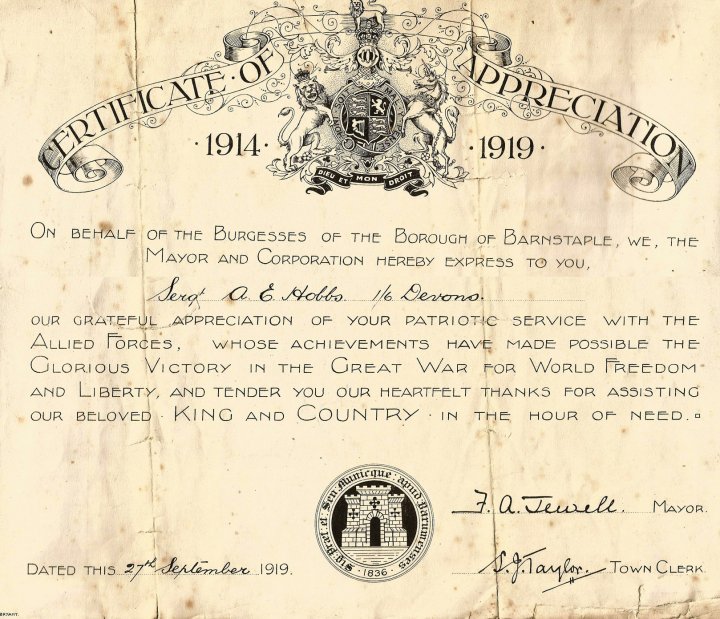 CERTIFICATE · OF APPRECIATION
· 1914 · · 1919 ·
DIEU ET MON DROIT
ON BEHALF OF THE BURGESSES OF THE BOROUGH OF BARNSTAPLE, WE, THE
MAYOR AND CORPORATION HEREBY EXPRESS TO YOU,
Sergt A. E. Hobbs. 1/6 Devons.
OUR GRATEFUL APPRECIATION OF YOUR PATRIOTIC SERVICE WITH THE
ALLIED FORCES, WHOSE ACHIEVEMENTS HAVE MADE POSSIBLE THE
GLORIOUS VICTORY IN THE GREAT WAR FOR WORLD FREEDOM
AND LIBERTY, AND TENDER YOU OUR HEARTFELT THANKS FOR ASSISTING
OUR BELOVED · KING AND COUNTRY · IN THE HOUR OF NEED.
et Sen Municque: apud
1836
F. A. Jewell. MAYOR.
DATED THIS 27th September 1919.
S. J. Taylor. TOWN CLERK